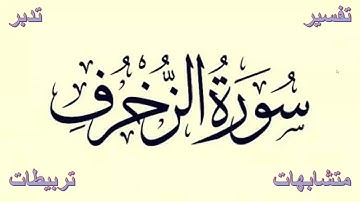 تفسير تدبر
سُورَةُ الزُّخْرُفِ
متشابهات تربيطات